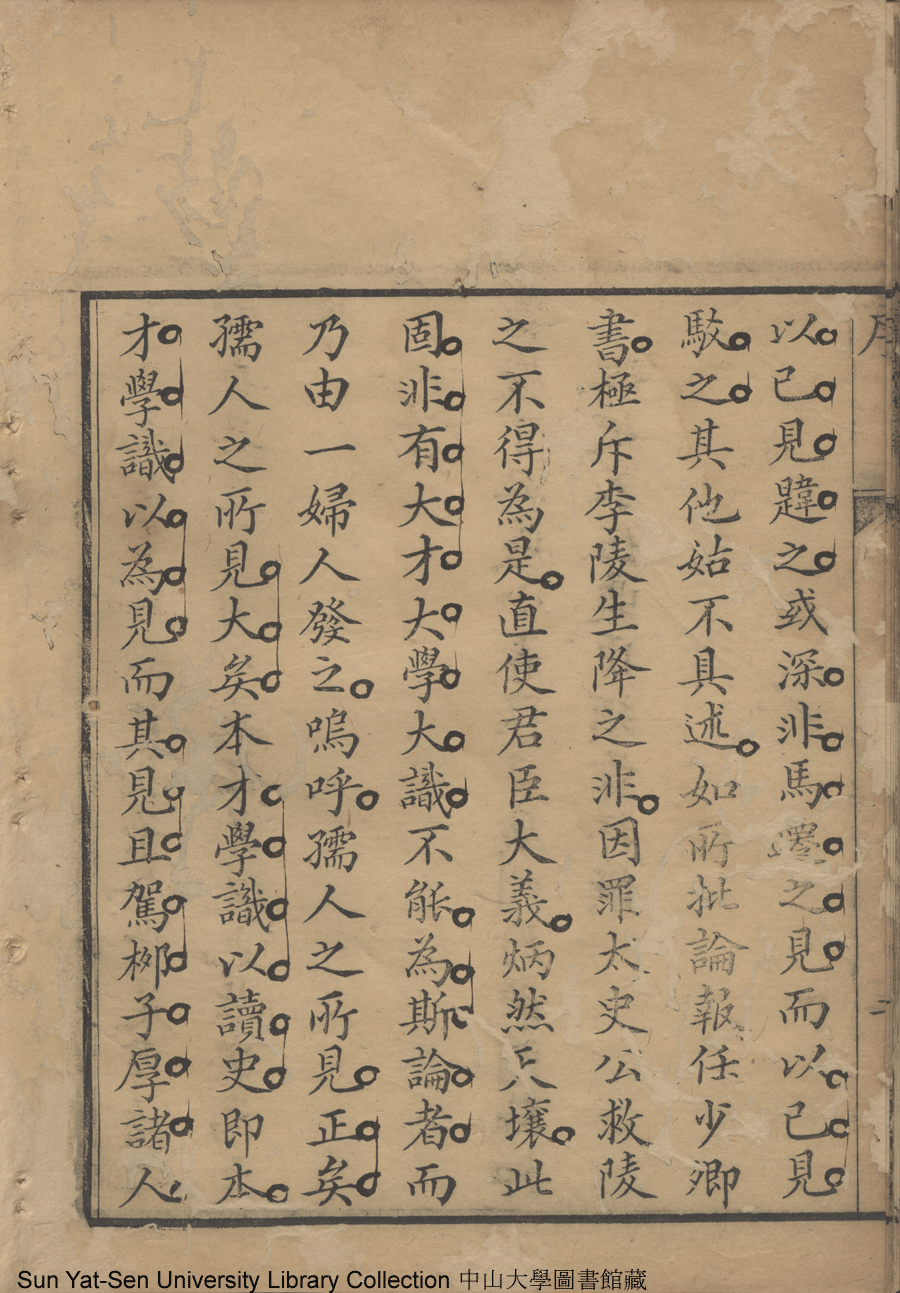 以已見韙之或深非馬遷之見而以已見
駁之其他姑不具述如所批論報任少卿
書極斥李陵生降之非因罪太史公救陵
之不得為是直使君臣大義炳然天壤此
固非有大才大學大識不能為斯論者而
乃由一婦人發之嗚呼孺人之所見正矣
孺人之所見大矣本才學識以讀史即本
才學識以為見而其見且駕栁子厚諸人
序
二
Sun Yat-Sen University Library Collection 中山大學圖書館藏